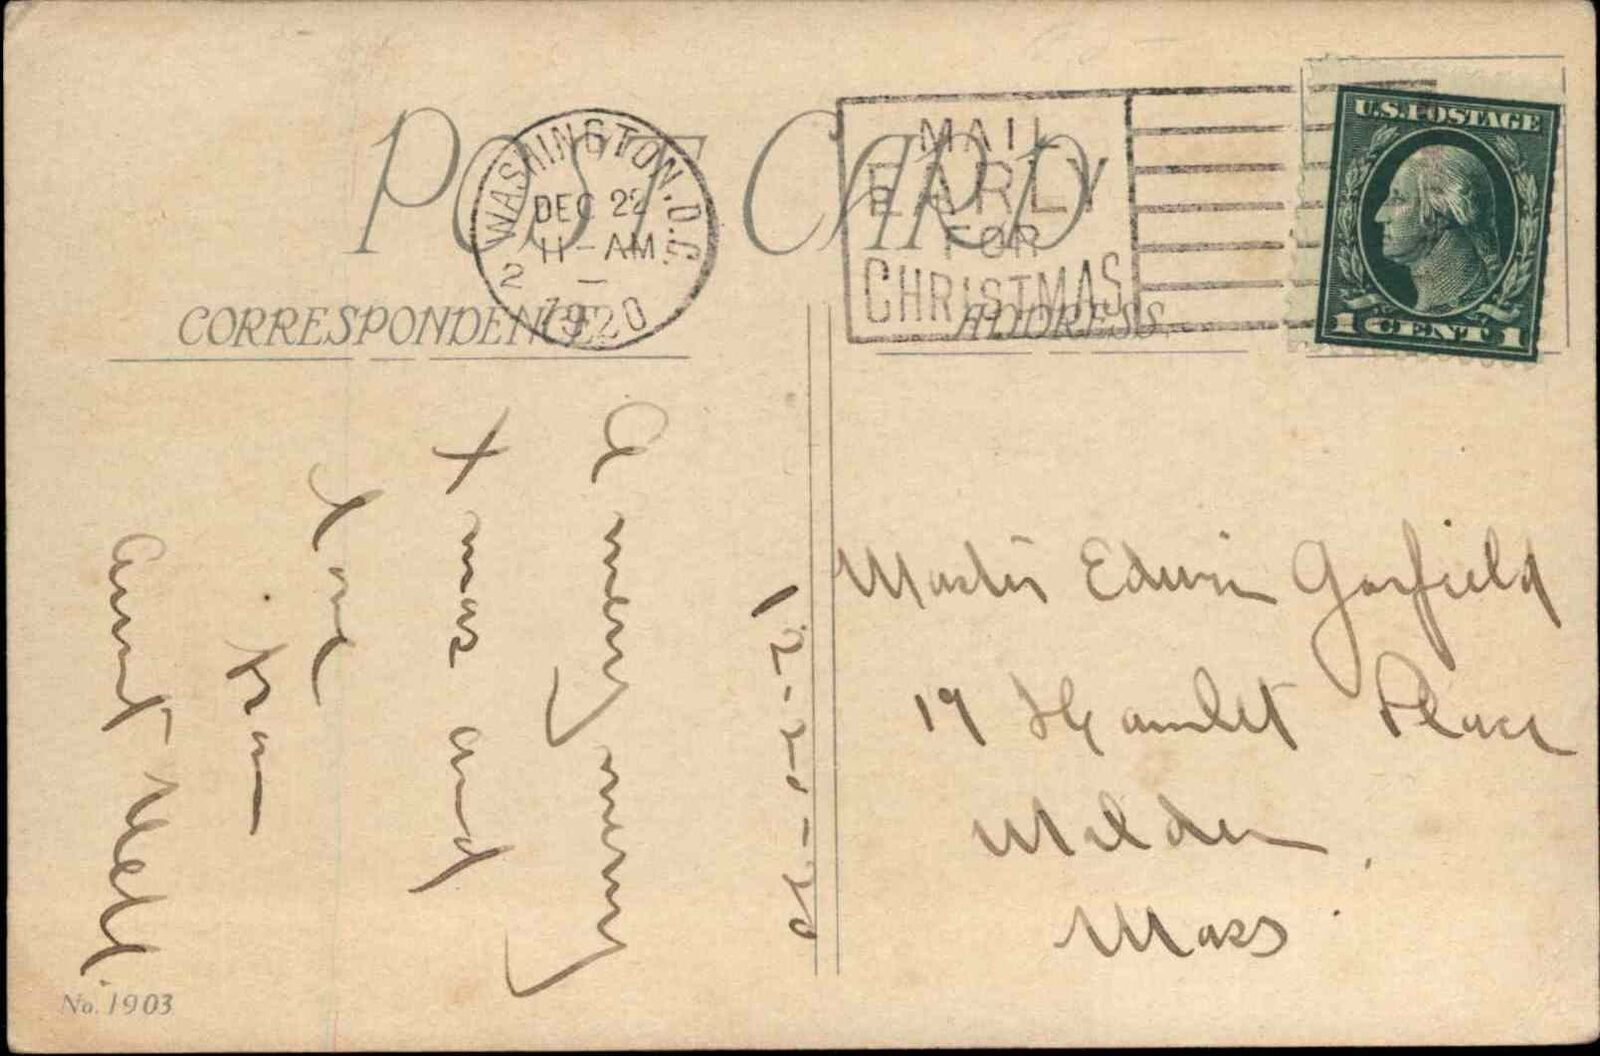 POST CARD
WASHINGTON, D.C.
DEC 22
11-AM
2
1920
MAIL
EARLY
FOR
CHRISTMAS
U.S. POSTAGE
1 CENT 1
CORRESPONDENCE
ADDRESS
12-21-20
A merry merry
Xmas and
love
from
Aunt Nell
Master Edwin Garfield
19 Hamlet Place
Malden,
Mass.
No. 1903